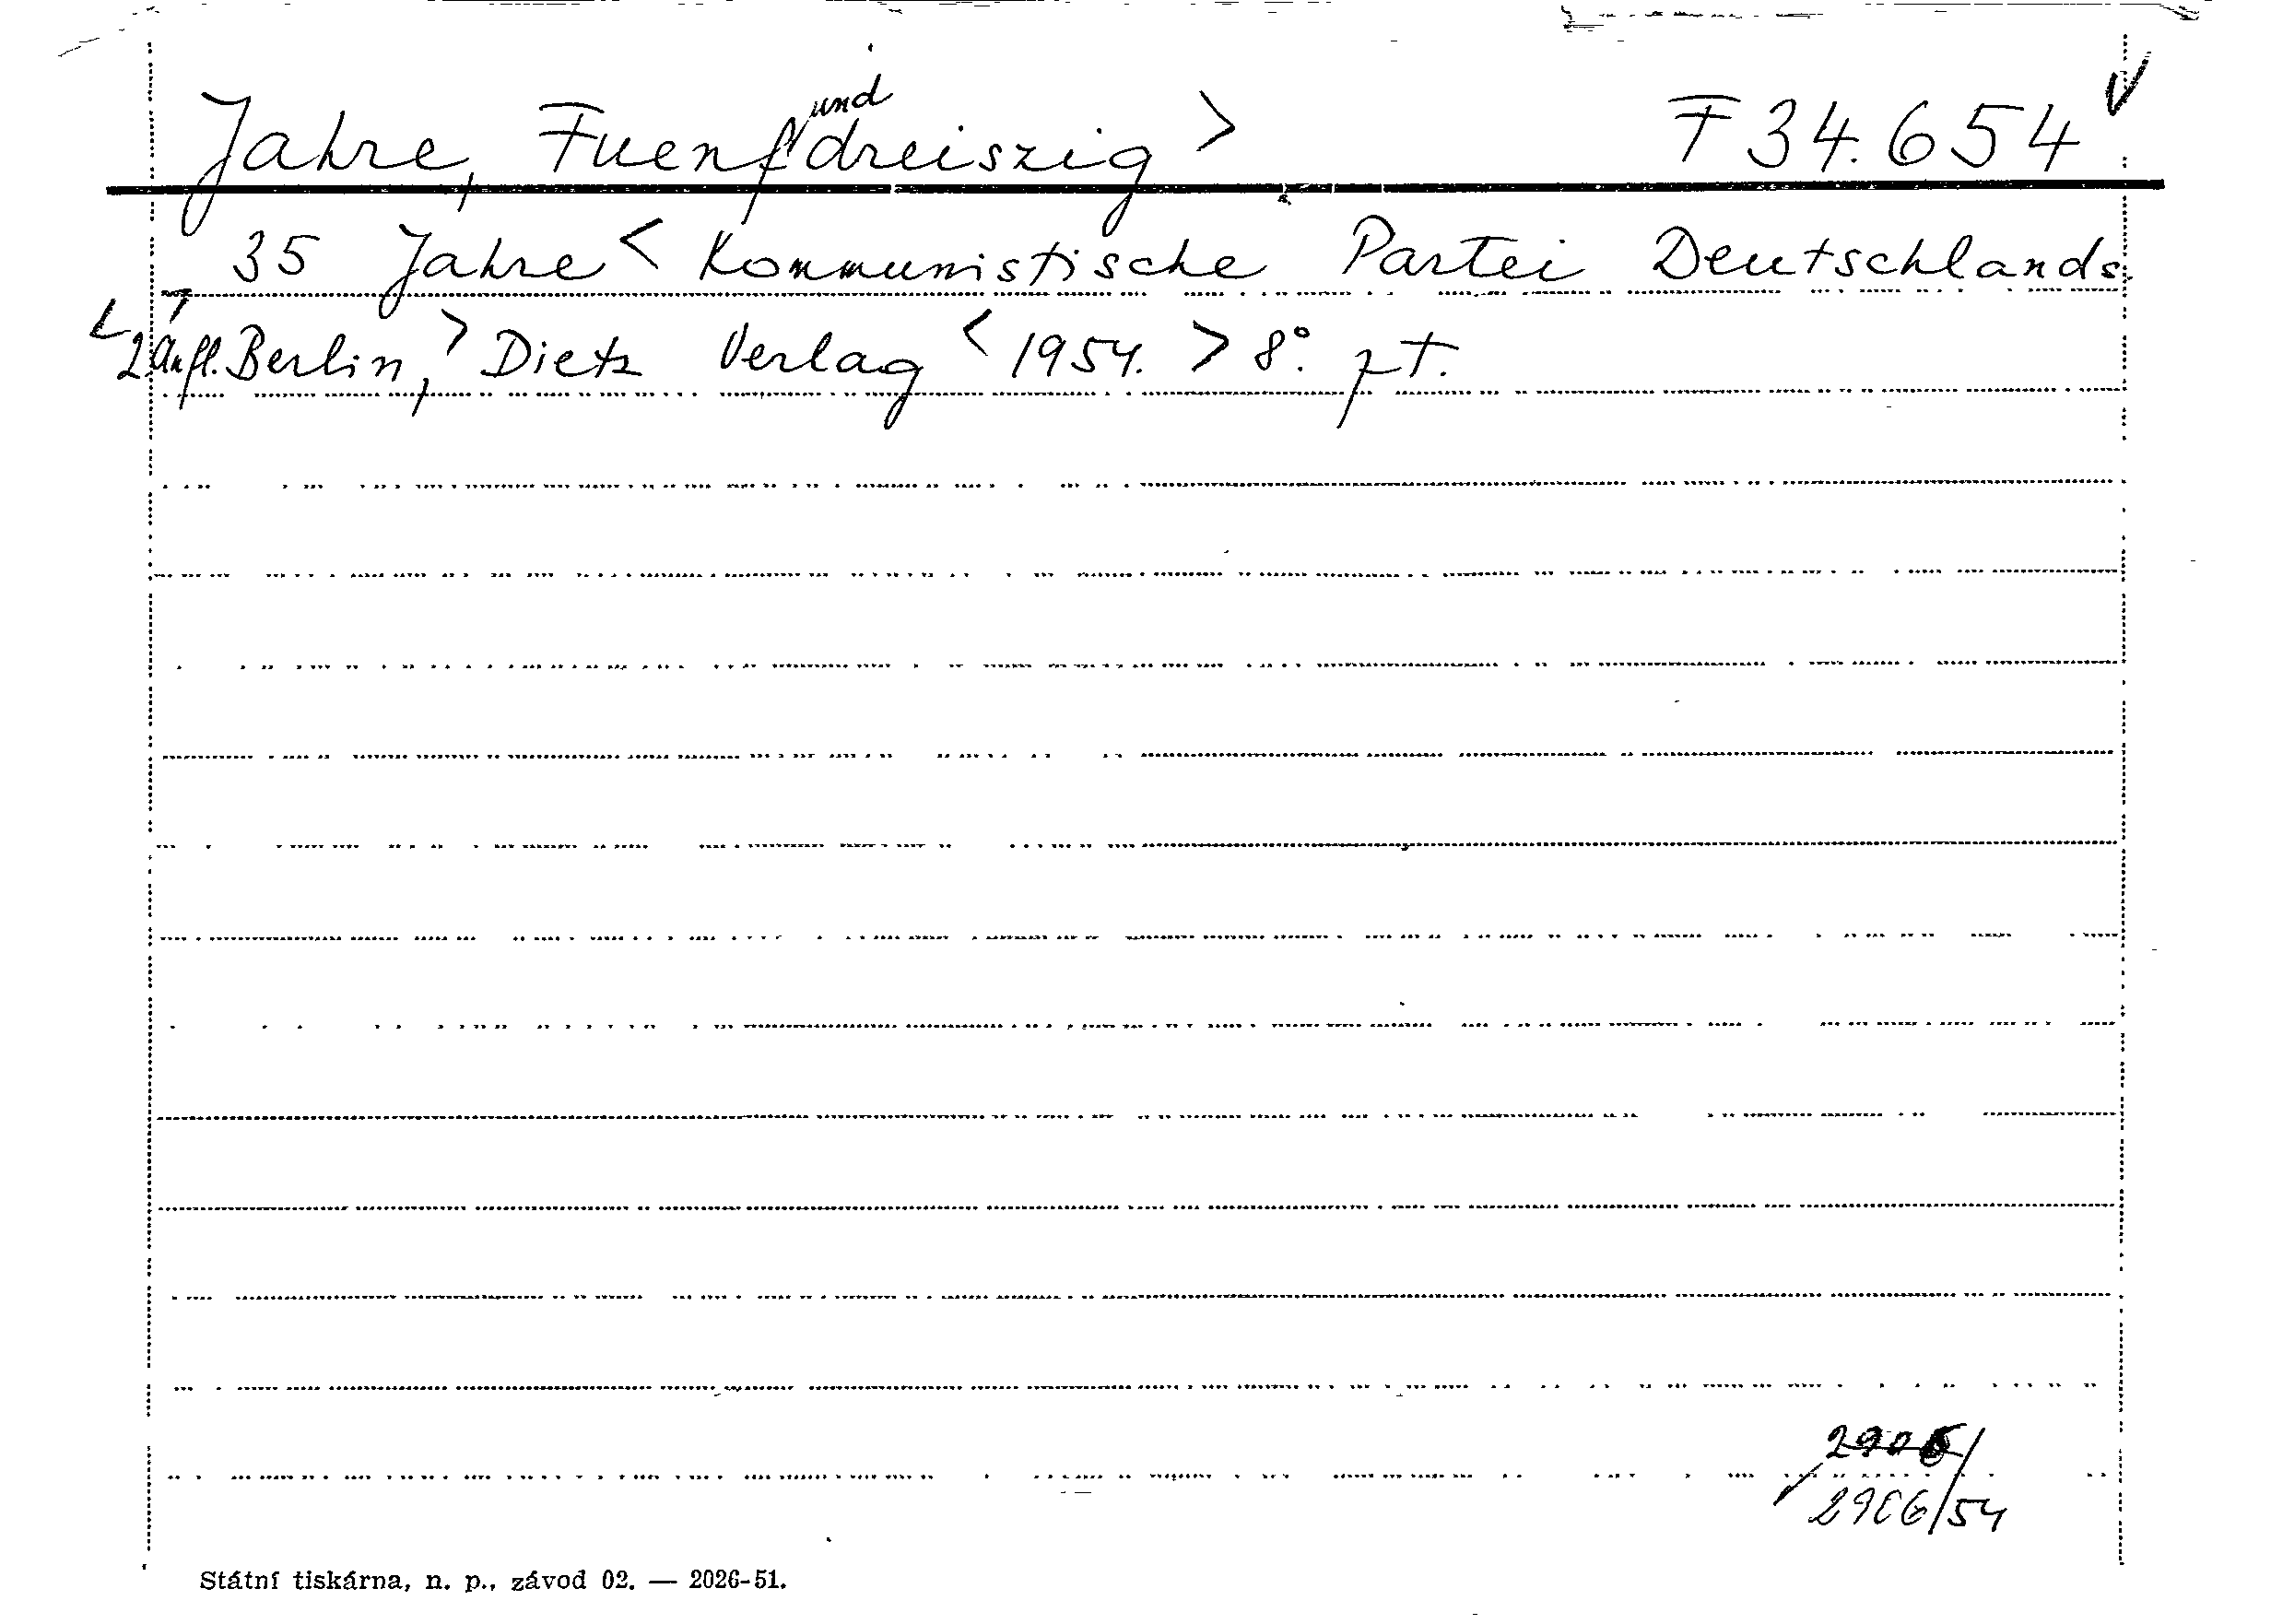 Jahre, Fuenfunddreiszig > F 34.654
35 Jahre < Kommunistische Partei Deutschlands.
< 2. Aufl. Berlin, > Dietz Verlag < 1954. > 8°. pt.
2906/
2906/54
Státní tiskárna, n. p., závod 02. — 2026-51.